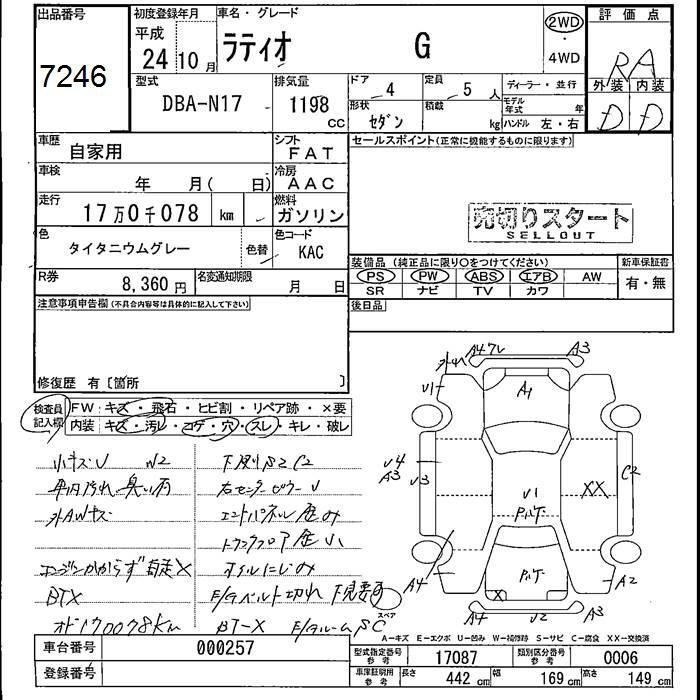 出品番号 初度登録年月 車名・グレード 評価点
7246 平成 24 10月 ラティオ G 2WD ・ 4WD RA
外装 内装
型式 排気量 ドア 4 定員 5人 ディーラー・並行
DBA-N17 1198 CC 形状 セダン 積載 kg モデル年式 年 D D
ハンドル 左・右
車歴 自家用 シフト FAT セールスポイント(正常に機能するものに限ります)
車検 年 月( 日) 冷房 AAC
走行 17万0千078 km 燃料 ガソリン
売切りスタート
SELLOUT
色 タイタニウムグレー 色替 色コード KAC
装備品 (純正品に限り○をつけてください) 新車保証書
R券 8,360円 名変通知期限 月 日 PS PW ABS エアB AW 有・無
SR ナビ TV カワ
注意事項申告欄(不具合内容等は具体的に記入して下さい) 後日品
修復歴 有〔箇所 〕
検査員記入欄 FW:キズ・飛石・ヒビ割・リペア跡・×要
内装:キズ・汚レ・コゲ・穴・スレ・キレ・破レ
小キズU W2 下廻りS2 C2
車内汚れ・臭い有 右センターピラーU
外AWキズ エンドパネル歪み
トランクフロア歪小
エンジンかからず自走X オイルにじみ
BTX E/Gベルト切れ 下見要す
オド170078km BT-X E/Gルーム SC
A4 A3 U1 A1
U4 A3 U3 C2
U1 XX
A4 A2
X スペア
A4 U2 A3
A-キズ E-エクボ U-凹み W-補修跡 S-サビ C-腐食 XX-交換済
車台番号 000257 型式指定番号 参考 17087 類別区分番号 参考 0006
登録番号 車庫証明用 参考 長さ 442 cm 幅 169 cm 高さ 149 cm